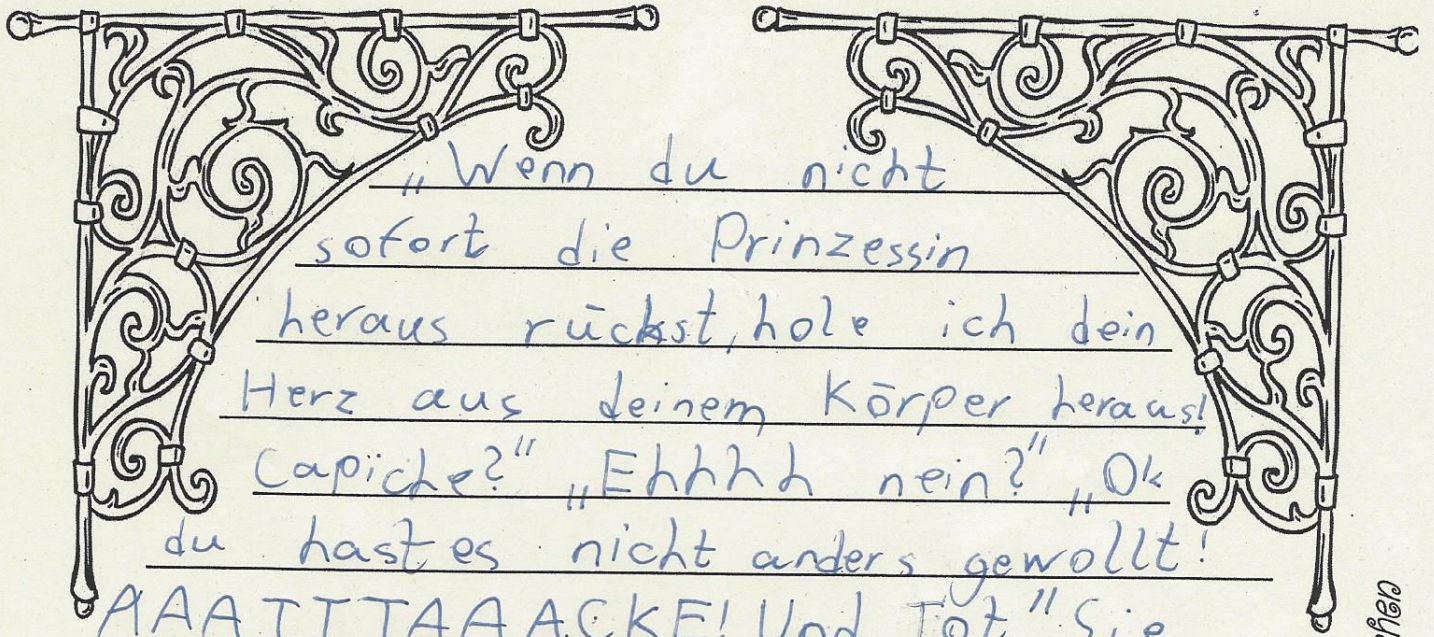 „Wenn du nicht
sofort die Prinzessin
heraus rückst, hole ich dein
Herz aus deinem Körper heraus!
Capiche?" „Ehhhh nein?" „Ok
du hast es nicht anders gewollt!
AAATTTAAACKE! Und Tot" Sie